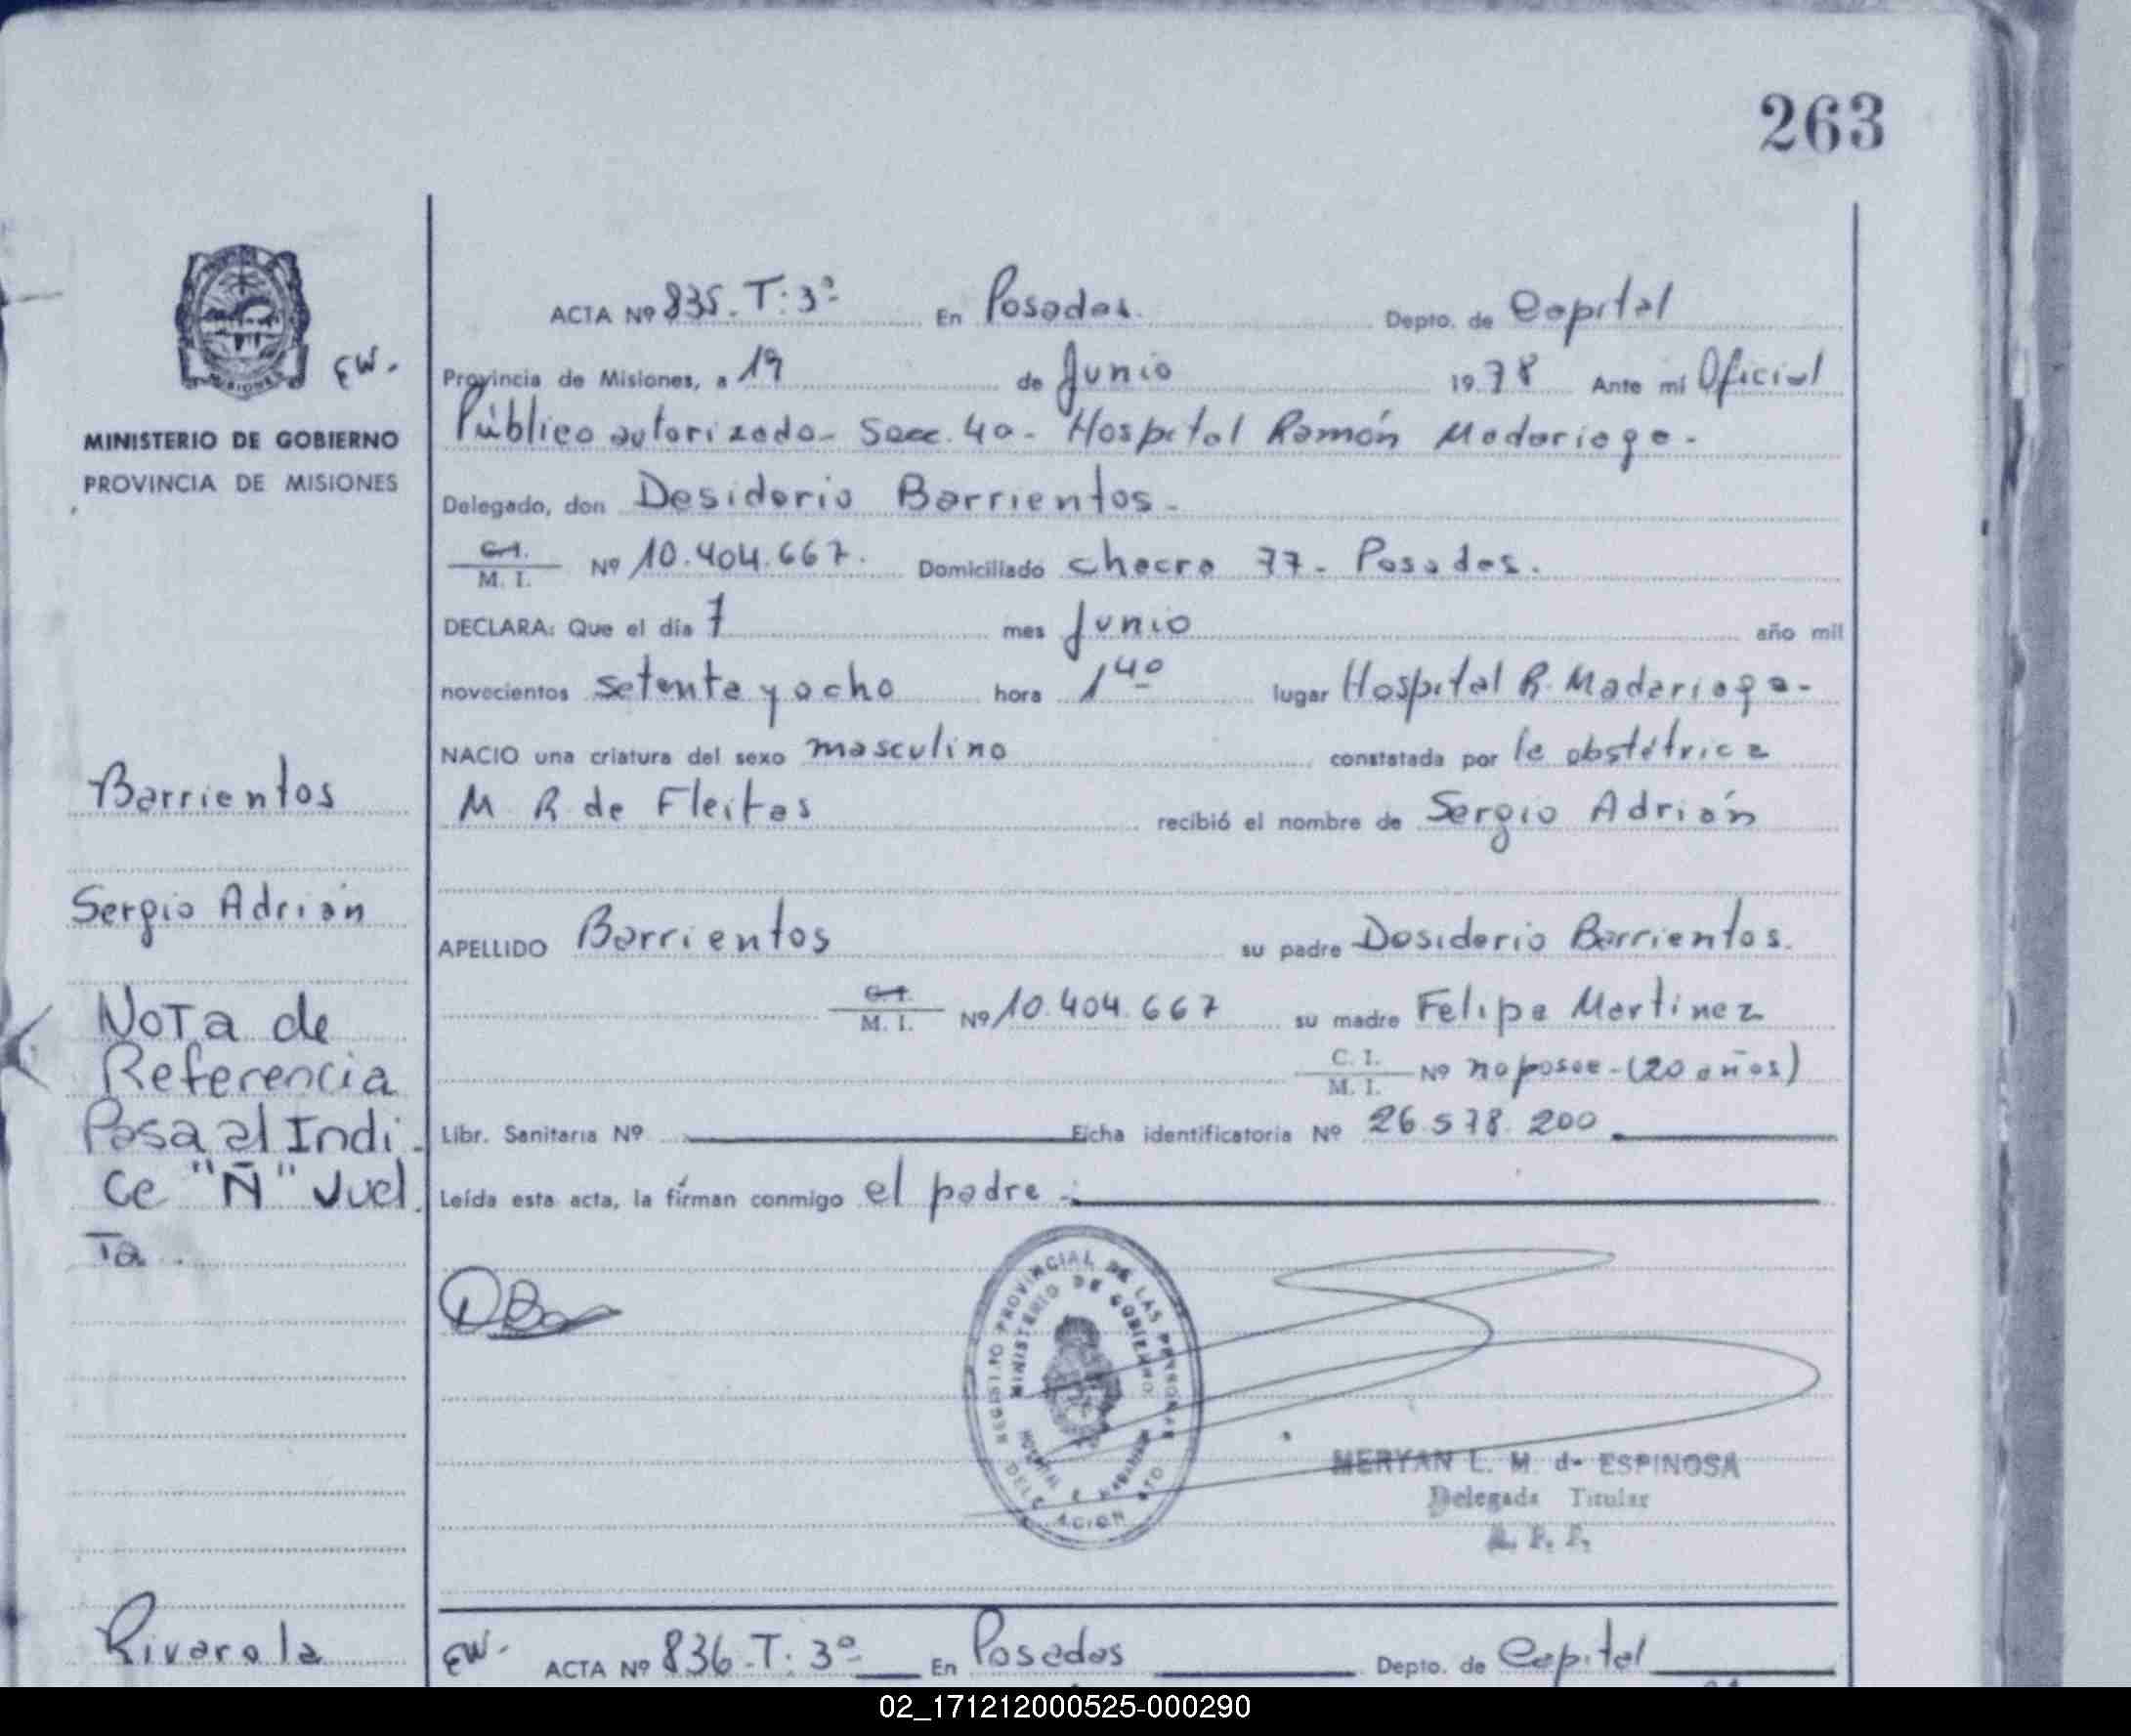 263
ACTA Nº 835. T: 3º En Posadas. Depto. de Capital
EW.
Provincia de Misiones, a 19 de Junio 1978 Ante mí Oficial
Público autorizado - Secc. 4a - Hospital Ramón Madariaga.
MINISTERIO DE GOBIERNO
PROVINCIA DE MISIONES
Delegado, don Desiderio Barrientos.
C.I. M. I. Nº 10.404.667. Domiciliado chacra 77 - Posadas.
DECLARA: Que el día 7 mes Junio año mil
novecientos setenta y ocho hora 1 40 lugar Hospital R. Madariaga -
NACIO una criatura del sexo masculino constatada por la obstétrica
M R de Fleitas recibió el nombre de Sergio Adrián
Barrientos
Sergio Adrián
APELLIDO Barrientos su padre Desiderio Barrientos.
C.I. M. I. Nº 10.404.667 su madre Felipa Martinez
C. I. M. I. Nº no posee - (20 años)
Libr. Sanitaria Nº Ficha identificatoria Nº 26.578.200
Leída esta acta, la firman conmigo el padre -
Nota de
Referencia
Pasa al Indi-
ce "Ñ" Vuel
Ta.
REGISTRO PROVINCIAL DE LAS PERSONAS
MINISTERIO DE GOBIERNO
DELEGACION
MERYAN L. M. de ESPINOSA
Delegada Titular
Rivarola
EW. ACTA Nº 836. T: 3º En Posadas Depto. de Capital
02_171212000525-000290